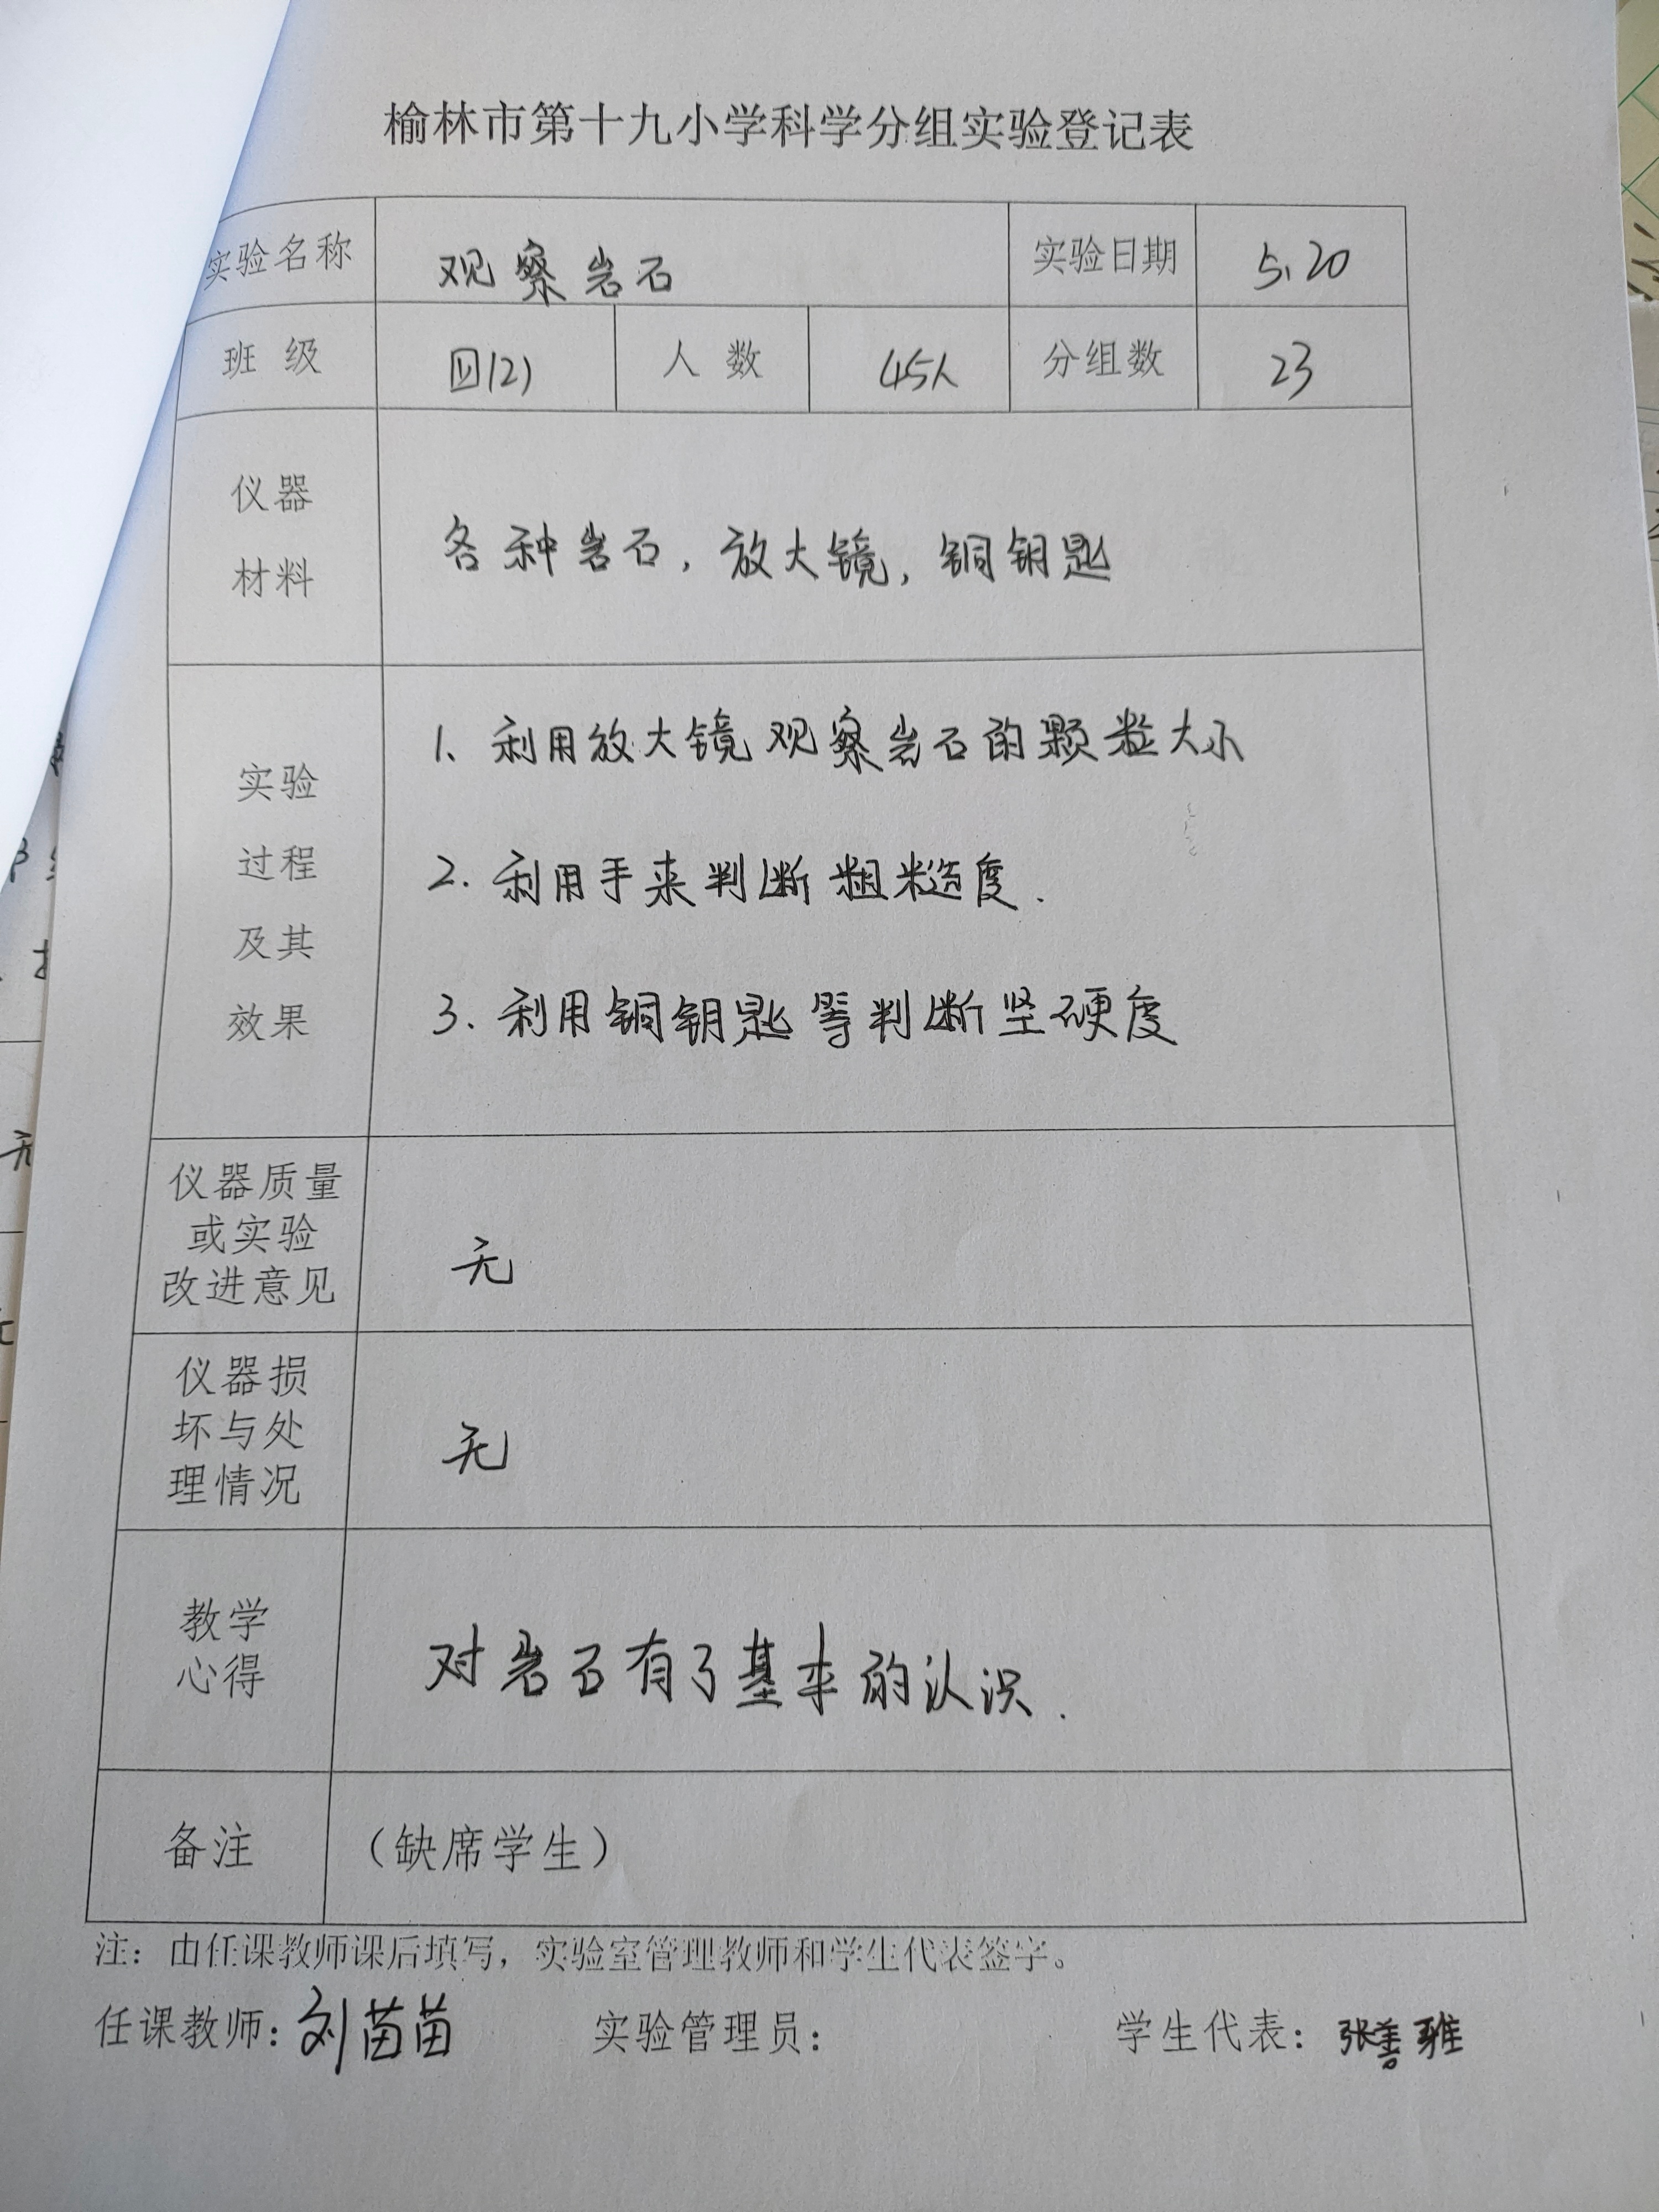 榆林市第十九小学科学分组实验登记表
实验名称 观察岩石 实验日期 5.20
班级 四(2) 人数 45人 分组数 23
仪器
材料
各种岩石,放大镜,铜钥匙
实验
过程
及其
效果
1、利用放大镜观察岩石的颗粒大小
2.利用手来判断粗糙度.
3.利用铜钥匙等判断坚硬度
仪器质量
或实验
改进意见
无
仪器损
坏与处
理情况
无
教学
心得
对岩石有了基本的认识.
备注 (缺席学生)
注:由任课教师课后填写,实验室管理教师和学生代表签字。
任课教师:刘苗苗 实验管理员: 学生代表:张善雅
无